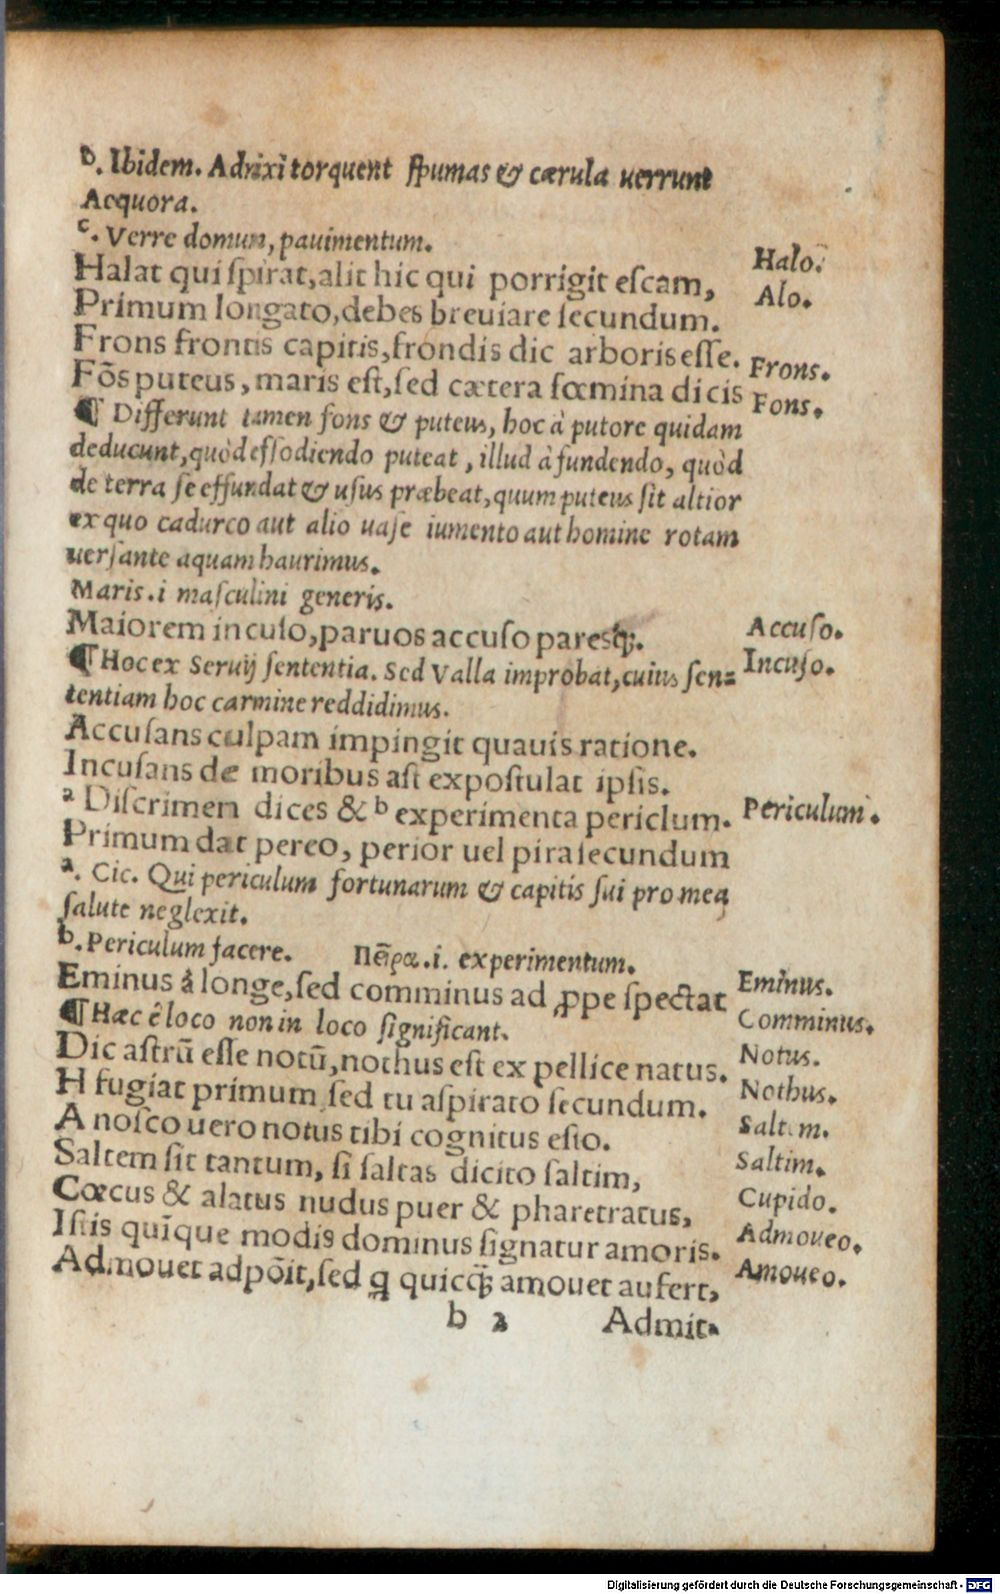 b. Ibidem. Adnixi torquent spumas & cærula uerrunt
Aequora.
c. Verre domum, pauimentum.
Halat qui spirat, alit hic qui porrigit escam, Halo.
Primum longato, debes breuiare secundum. Alo.
Frons frontis capitis, frōdis dic arboris esse. Frons.
Fōs puteus, maris est, sed cætera fœmina dicis Fons.
¶ Differunt tamen fons & puteus, hoc à putore quidam
deducunt, quòd effodiendo puteat, illud à fundendo, quòd
de terra se effundat & usus præbeat, quum puteus sit altior
ex quo cadurco aut alio uase iumento aut homine rotam
uersante aquam haurimus.
Maris .i masculini generis.
Maiorem incuso, paruos accuso paresq;. Accuso.
¶ Hoc ex Seruij sententia. Sed Valla improbat, cuius sen= Incuso.
tentiam hoc carmine reddidimus.
Accusans culpam impingit quauis ratione.
Incusans de moribus ast expostulat ipsis.
a Discrimen dices & b experimenta periclum. Periculum.
Primum dat pereo, perior uel pira secundum
a. Cic. Qui periculum fortunarum & capitis sui pro mea
salute neglexit.
b. Periculum facere. Πεῖρα .i. experimentum.
Eminus â longe, sed comminus ad ꝓpe spectat Eminus.
¶ Hæc ê loco non in loco significant. Comminus.
Dic astrū esse notū, nothus est ex pellice natus. Notus.
H fugiat primum, sed tu aspirato secundum. Nothus.
A nosco uero notus tibi cognitus esto. Saltem.
Saltem sit tantum, si saltas dicito saltim, Saltim.
Cœcus & alatus nudus puer & pharetratus, Cupido.
Istis quīque modis dominus signatur amoris. Admoueo.
Admouet adpōit, sed q quicq; amouet aufert, Amoueo.
b 2 Admit.
Digitalisierung gefördert durch die Deutsche Forschungsgemeinschaft - DFG